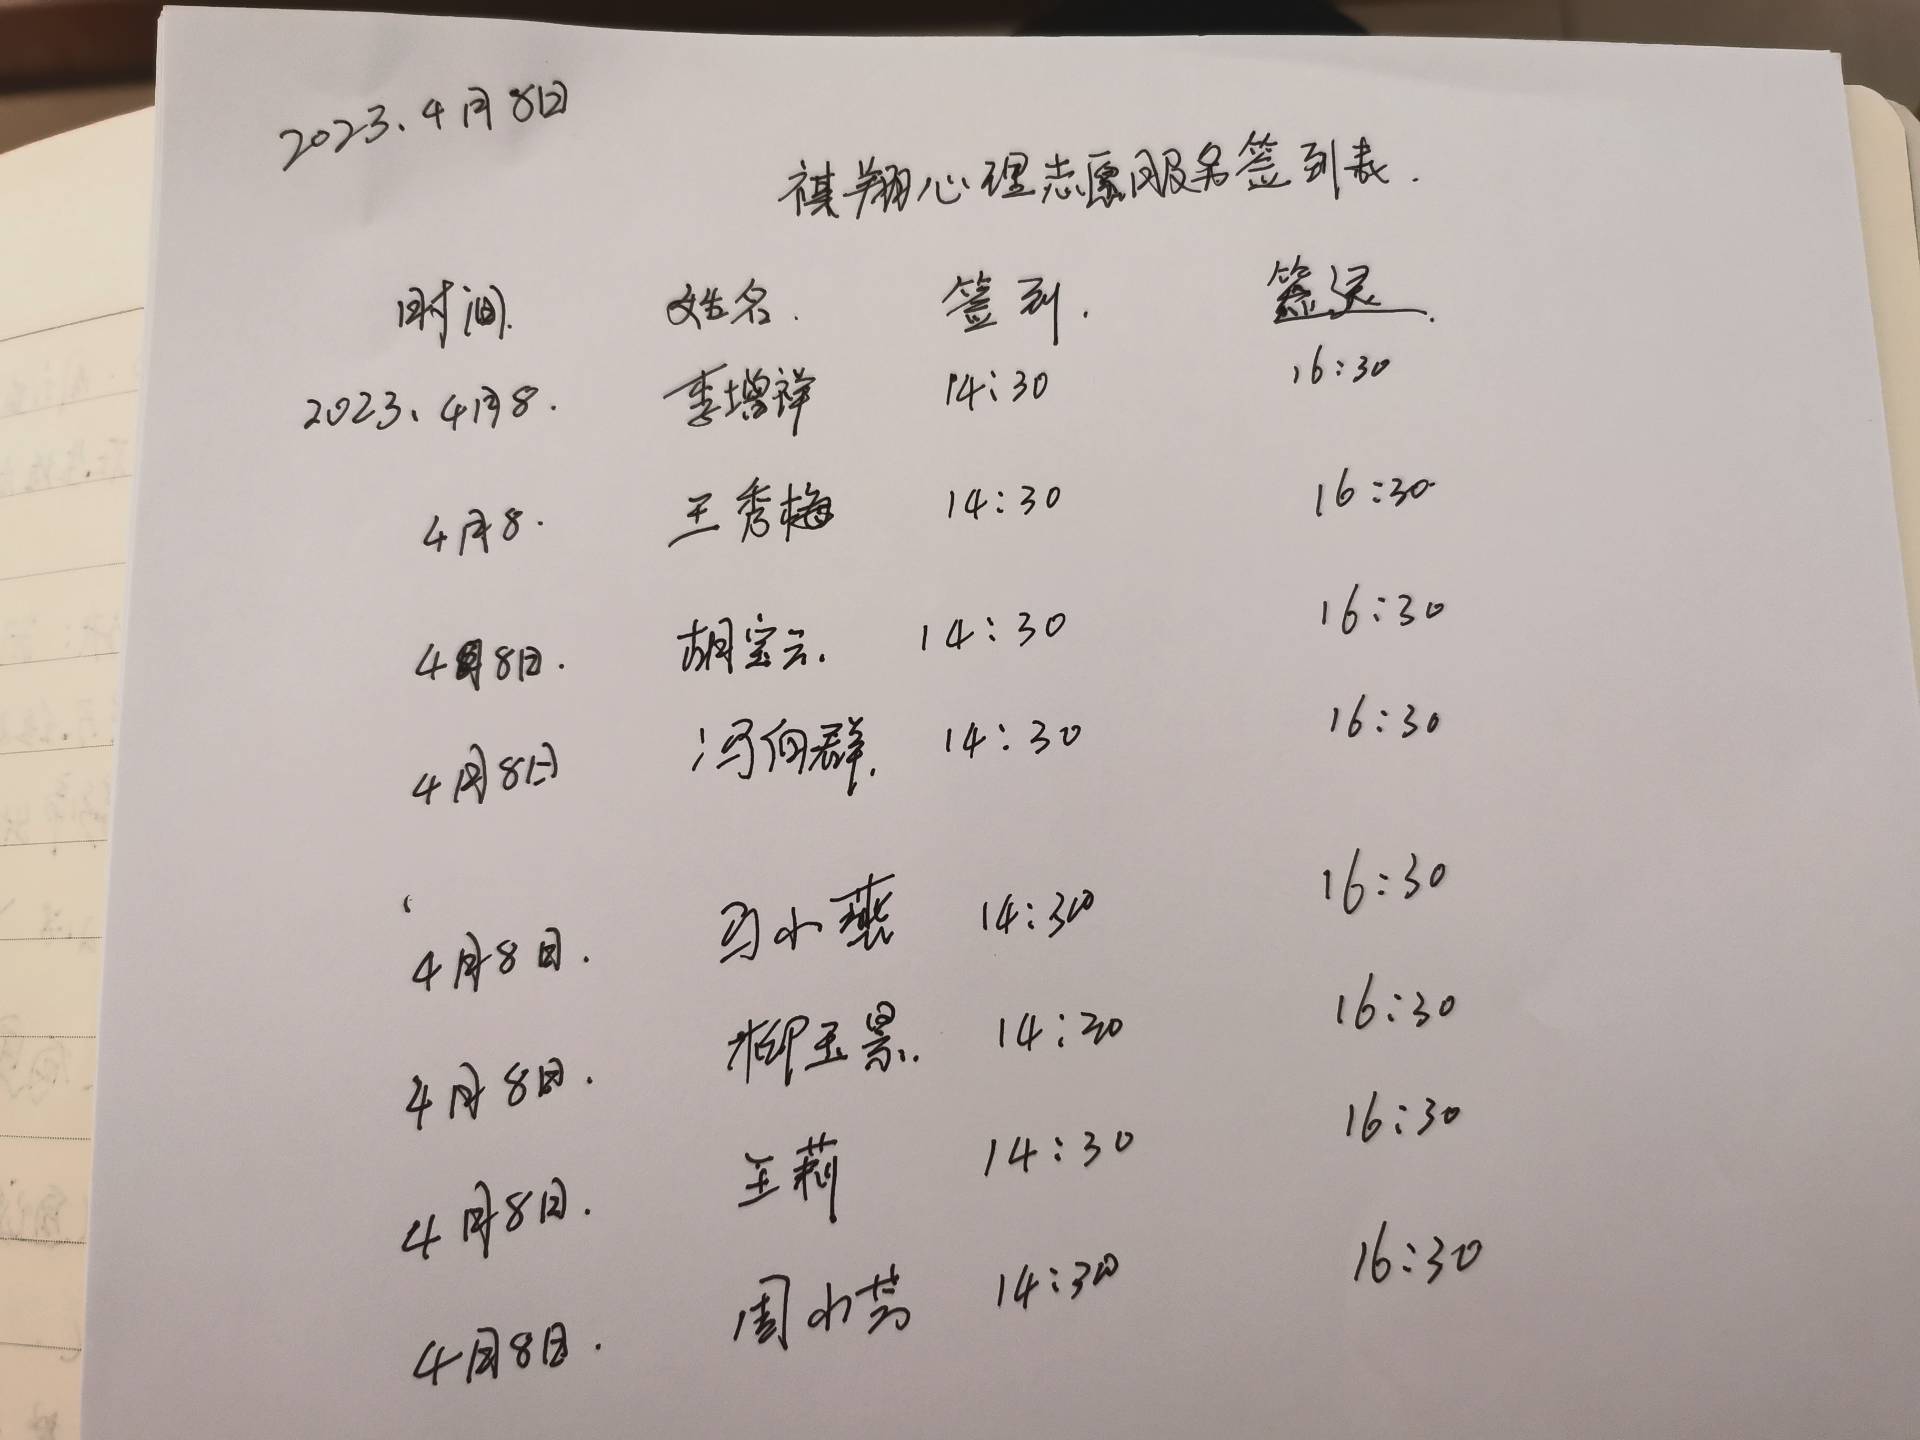 2023.4月8日
祺翔心理志愿服务签到表.
时间. 姓名. 签到. 签退.
2023.4月8. 李增祥 14:30 16:30
4月8. 王秀梅 14:30 16:30
4月8日. 胡宝云. 14:30 16:30
4月8日 冯向群. 14:30 16:30
4月8日. 马小燕 14:30 16:30
4月8日. 柳玉景. 14:30 16:30
4月8日. 王莉 14:30 16:30
4月8日. 周小芳 14:30 16:30